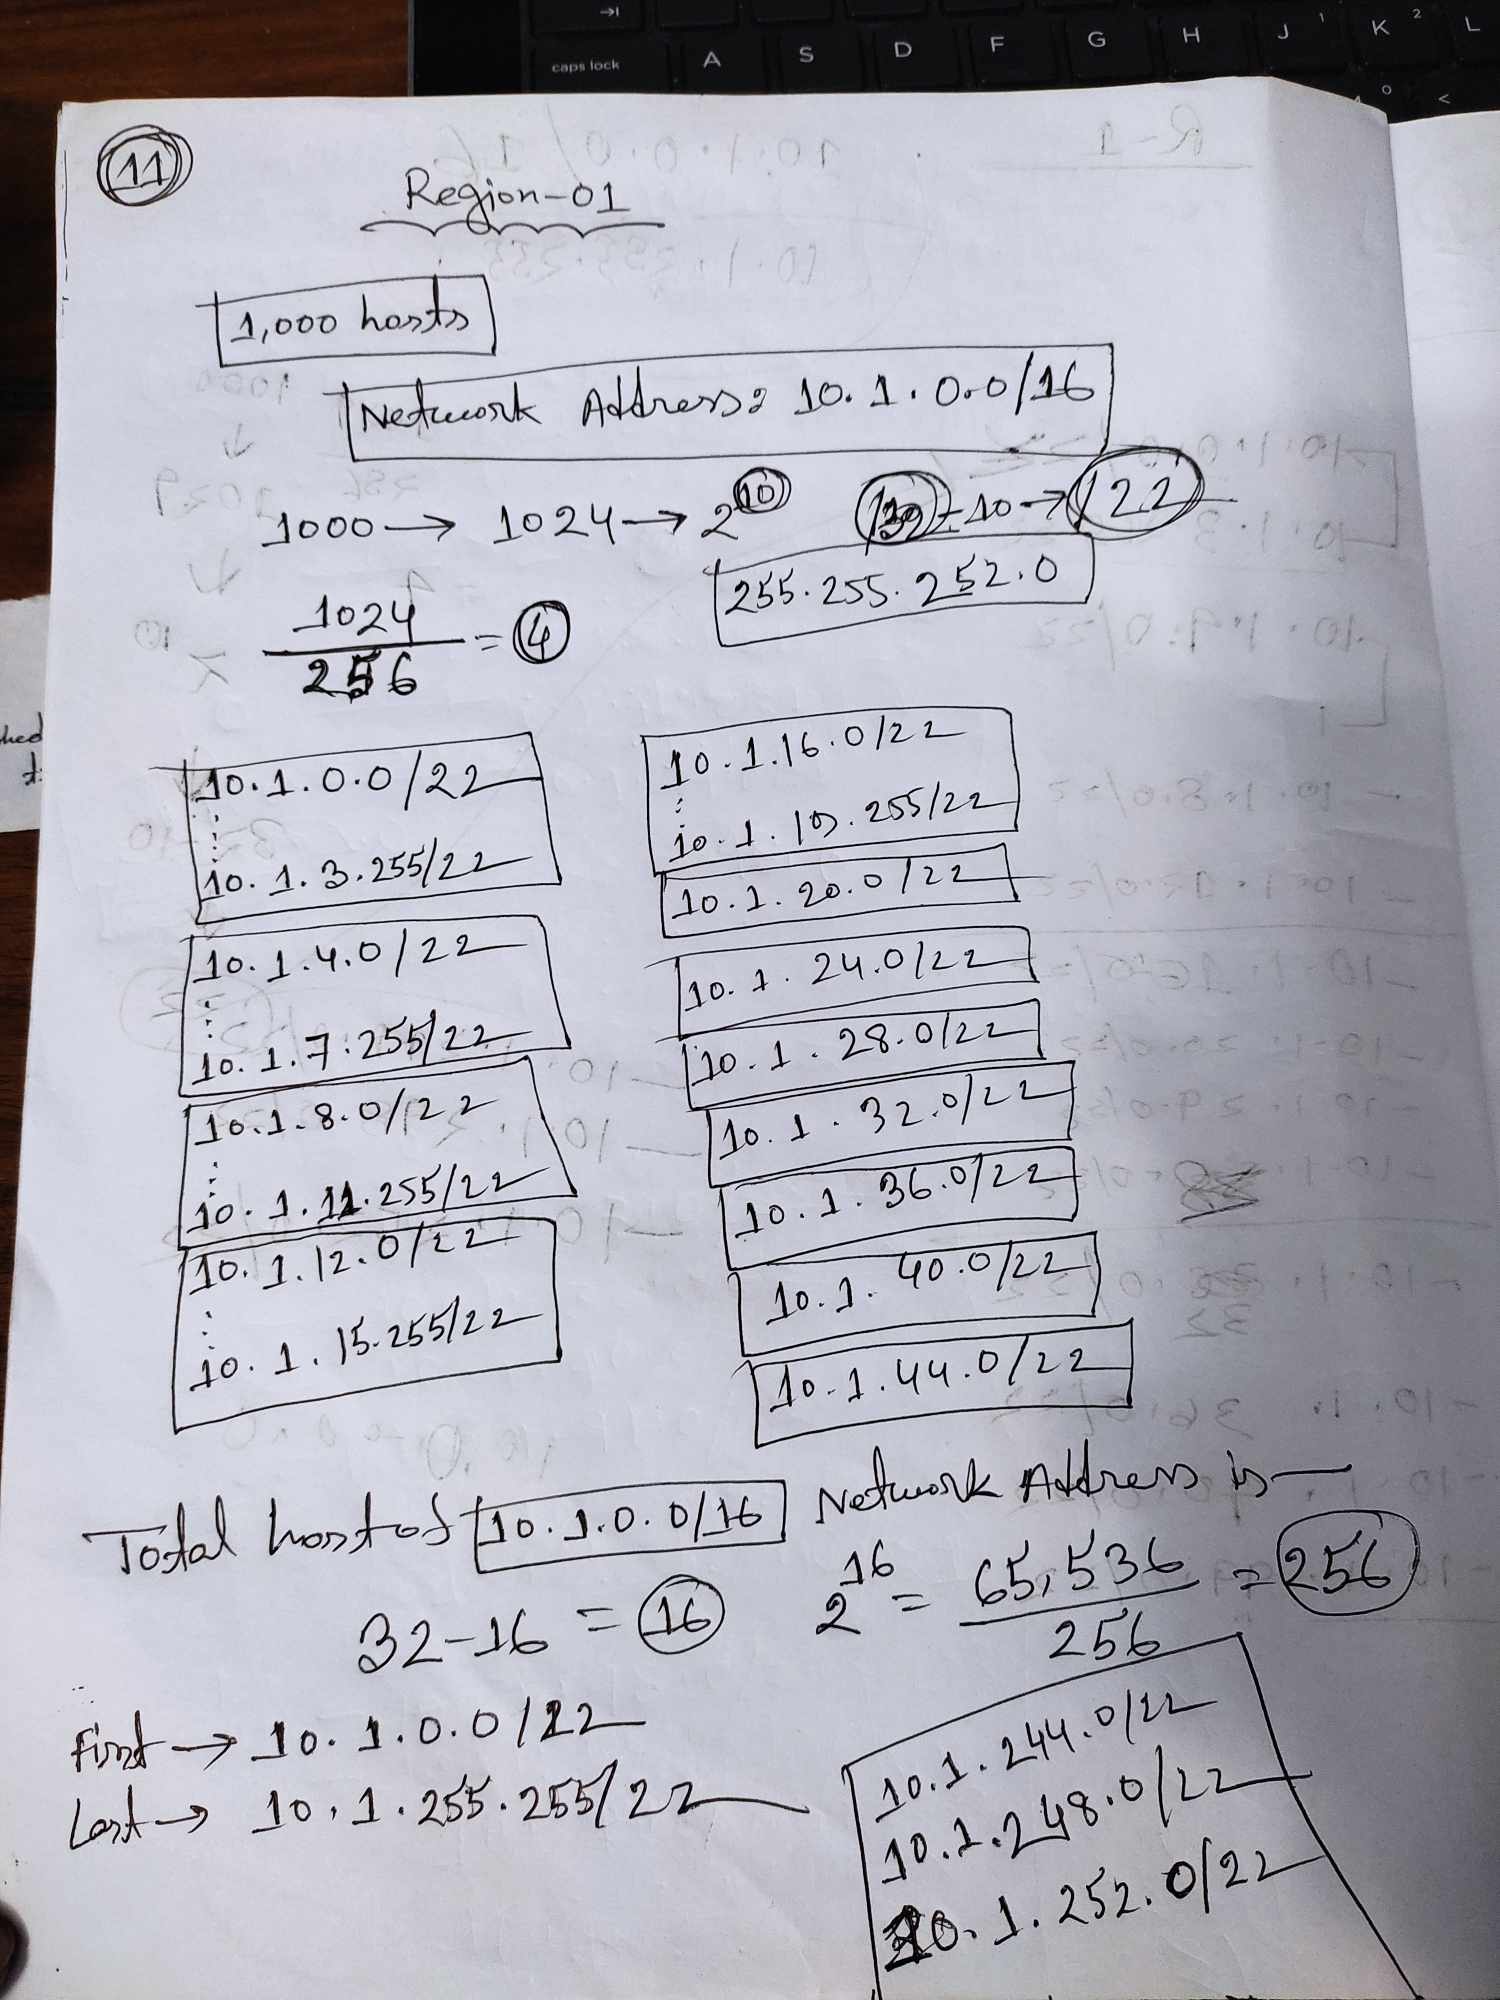 caps lock A S D F G H J K L
11
Region-01
1,000 hosts
Network Address: 10.1.0.0/16
1000 → 1024 → 2^10 /32-10 → /22
255.255.252.0
1024
256
= 4
10.1.0.0/22
10.1.3.255/22
10.1.4.0/22
10.1.7.255/22
10.1.8.0/22
10.1.11.255/22
10.1.12.0/22
10.1.15.255/22
10.1.16.0/22
10.1.19.255/22
10.1.20.0/22
10.1.24.0/22
10.1.28.0/22
10.1.32.0/22
10.1.36.0/22
10.1.40.0/22
10.1.44.0/22
Total host of 10.1.0.0/16 Network Address is—
32-16 = 16
2^16 = 65,536 / 256 = 256
First → 10.1.0.0/22
Last → 10.1.255.255/22
10.1.244.0/22
10.1.248.0/22
10.1.252.0/22